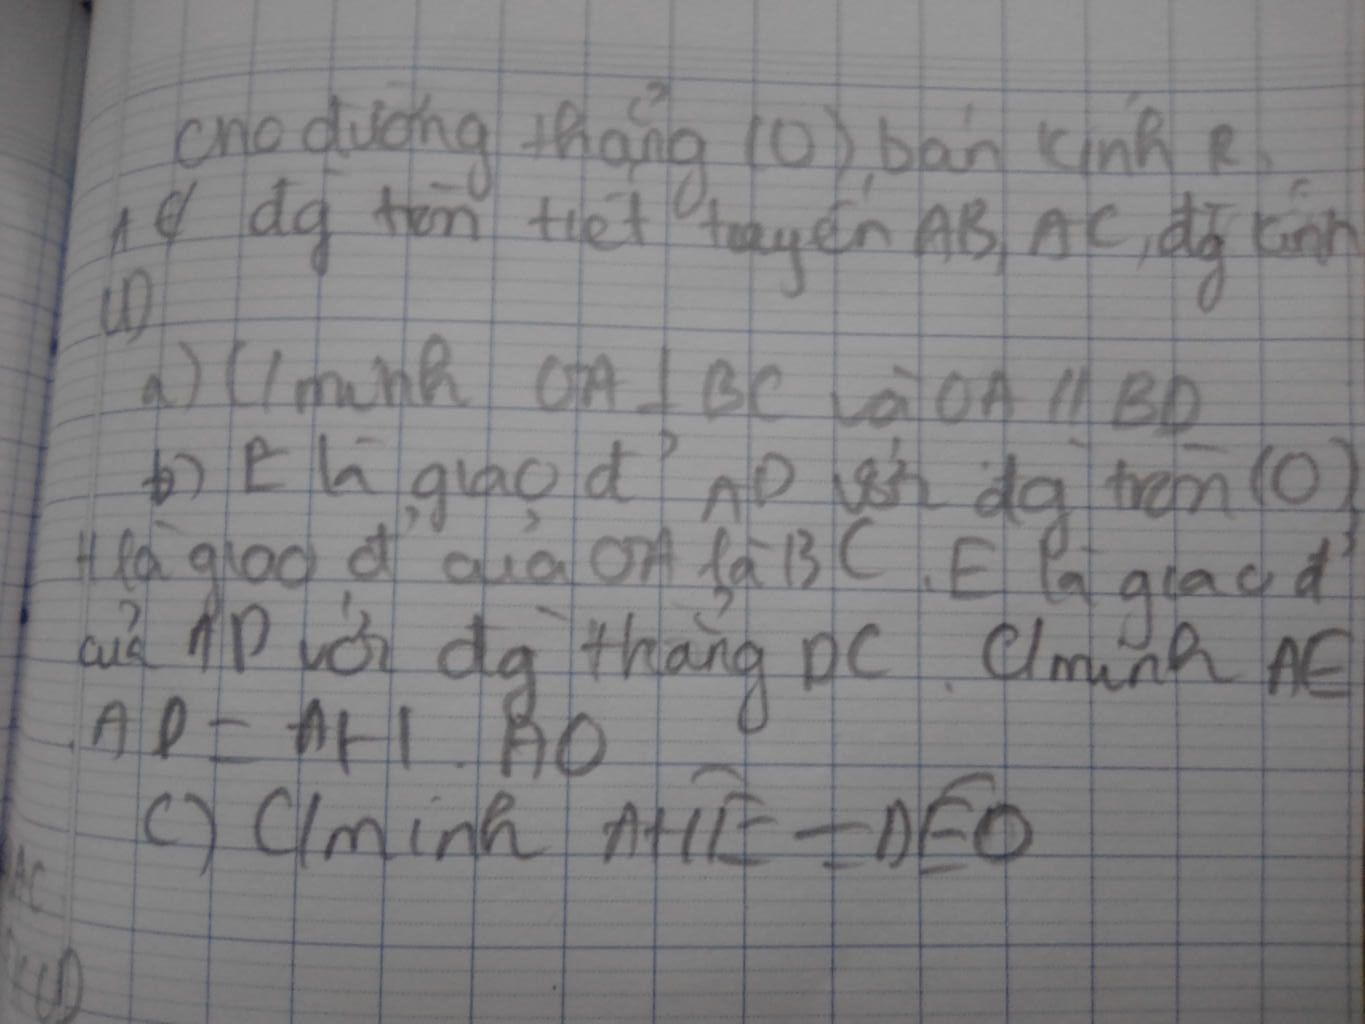 cho đường thẳng (O), bán kính R.
A ∉ đg tròn tiết tuyến AB, AC, đg kính
CD
a) C/minh OA ⊥ BC và OA // BD
b) E là giao đ' AD với đg tròn (O)
H là giao đ' của OA là BC. E là giao đ'
của AD với đg thẳng DC. C/minh AE
. AD = AH . AO
c) C/minh AHE = DEO
AC
CD